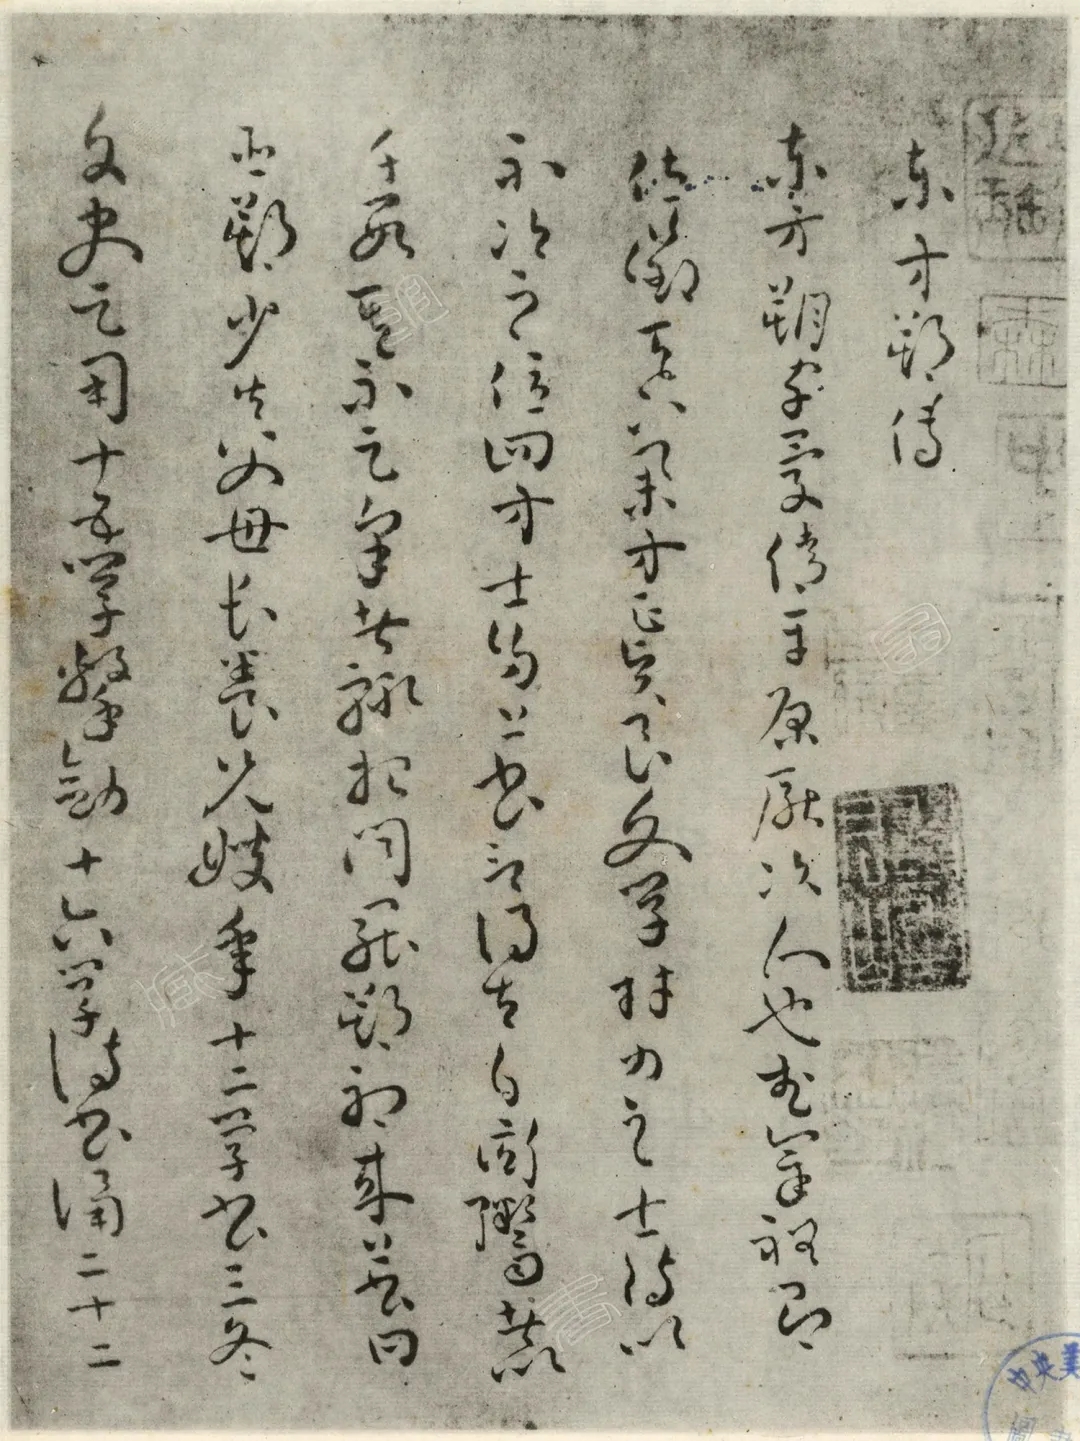 東方朔傳
東方朔字曼倩平原厭次人也武帝初即
位徵天下舉方正賢良文學材力之士待以
不次之位四方士多上書言得失自衒鬻者以
千數其不足采者輒報聞罷朔初來上書曰
臣朔少失父母長養兄嫂年十二學書三冬
文史足用十五學擊劍十六學詩書誦二十二
中央美